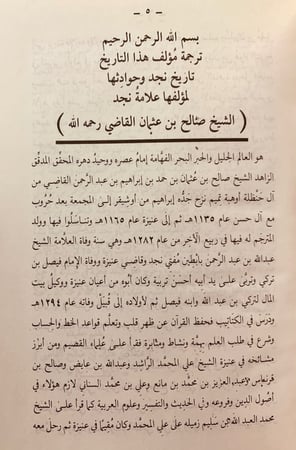 — ٥ —
بسم الله الرحمن الرحيم
ترجمة مُؤلف هذا التاريخ
تاريخ نجد وحوادِثها
لمؤلفها علّامةُ نجد
( الشيخ صَالح بن عثمان القاضي رحمه الله )
هو العالم الجليل والحَبْر البحر الفهّامة إمامُ عصره ووحيدُ دهره المحقق المدقق
الزاهد الشيخ صالح بن عُثمان بن حمد بن إبراهيم بن عبد الرحمن القاضي من
آل حنظلة أوهبة تميم نزح جدّه إبراهيم من أوشيقر إلى المجمعة بعد حُروب
مع آل حسن عام ١١٣٥هـ ثم إلى عنيزة عام ١١٦٥هـ وتناسلُوا فيها وولد
المترجَم له فيها في ربيع الآخر من عام ١٢٨٢هـ وهي سنة وفاة العلّامة الشيخ
عبدالله بن عبد الرحمن بابْطَين مُفتي نجد وقاضي عنيزة ووفاة الإمام فيصل بن
تركي وتربَّى على يد أبيه أحسنَ تربية وكان أبُوه من أعيان عنيزة ووكيلَ بيت
المال لتركي بن عبد الله وابنه فيصل ثم لأولاده إلى قُبيل وفاته عام ١٢٩٤هـ
ودرَس في الكتاتيب فحفظ القرآن عن ظهر قلب وتعلّم قواعد الخط والحساب
وشرع في طلب العِلم بهمّة ونشاط ومثابرة فقرأ على عُلماء القصيم ومن أبرز
مشائخه في عنيزة الشيخ علي المحمد الرّاشد وعبدالله بن عايض وصالح بن
قرناس وعبد العزيز بن محمد بن مانع وعلي بن محمد السناني لازم هؤلاء في
أصُول الدين وفروعه وفي الحديث والتفسير وعلوم العربية كما قرأ على الشيخ
محمد العبد الله بن سليم زميله على علي المحمد وكان مُقيمًا في عنيزة ثم رحل معه